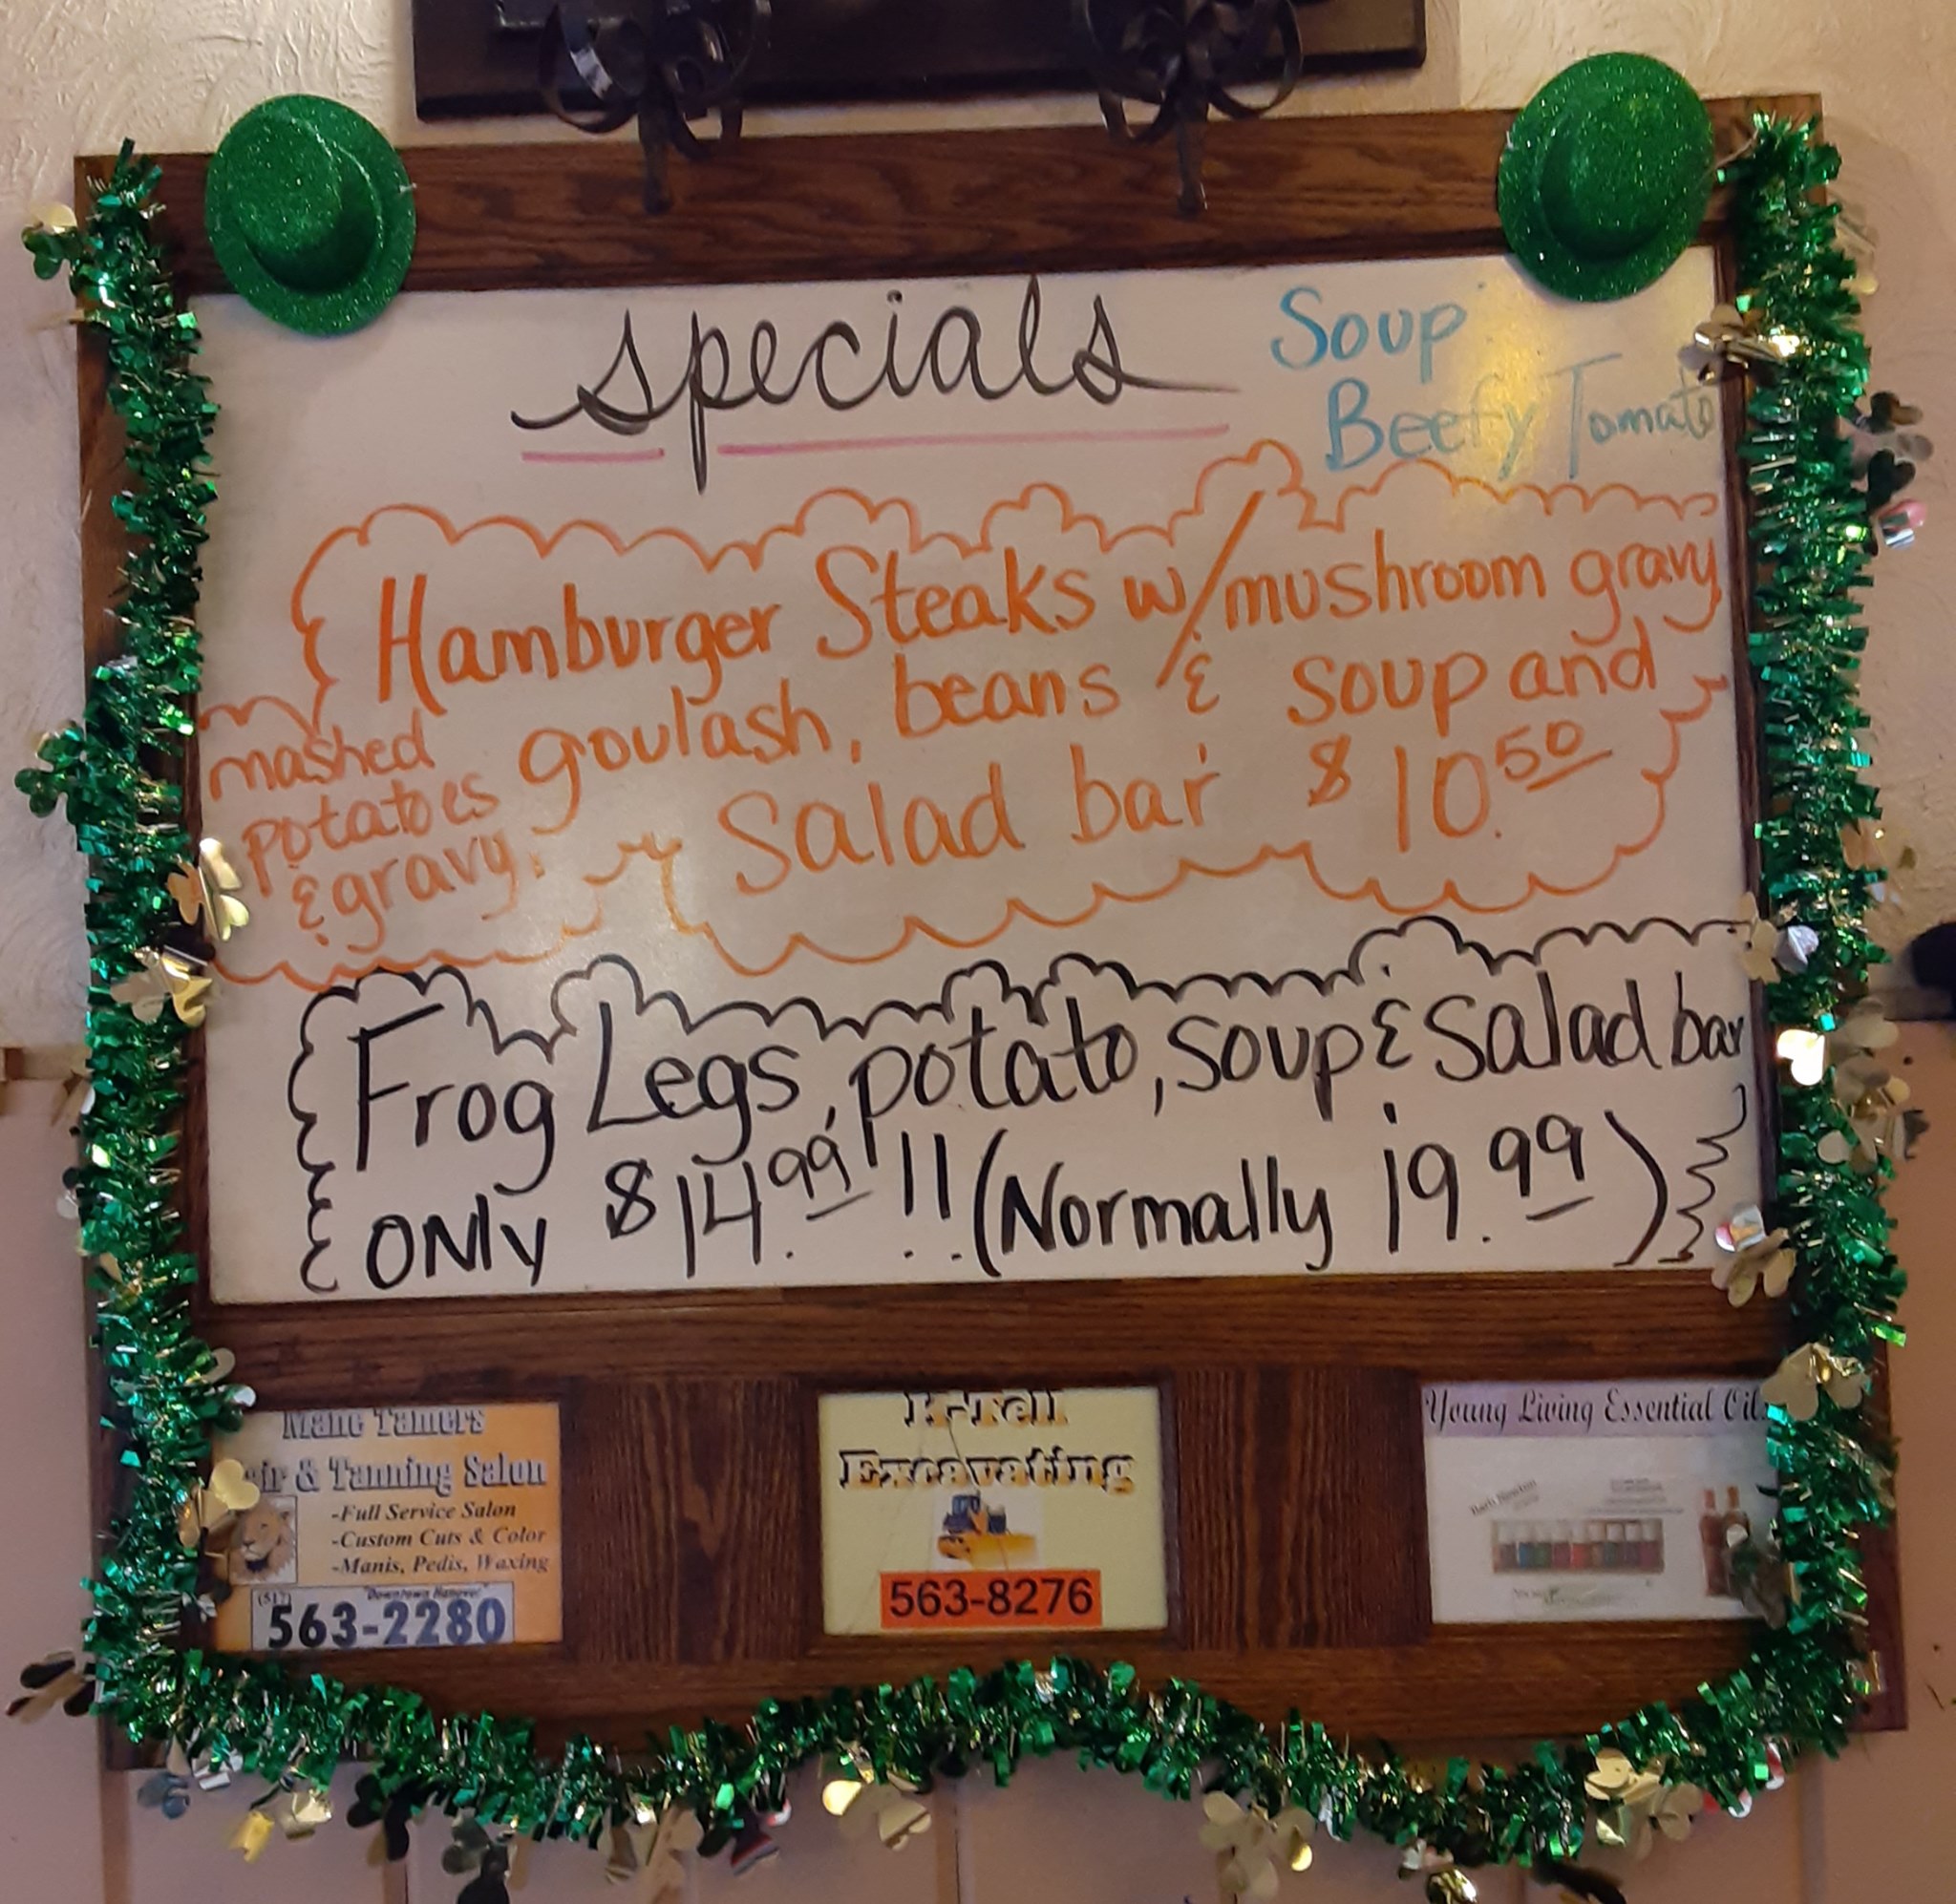 specials
Soup
Beefy Tomato
Hamburger Steaks w/mushroom gravy
mashed potatoes & gravy, goulash, beans & soup and
Salad bar $10.50
Frog Legs, potato, soup & Salad bar
ONly $14.99 !!! (Normally 19.99)
Mane Tamers
air & Tanning Salon
-Full Service Salon
-Custom Cuts & Color
-Manis, Pedis, Waxing
"Downtown Hanover"
(517)
563-2280
Excavating
563-8276
Young Living Essential Oils